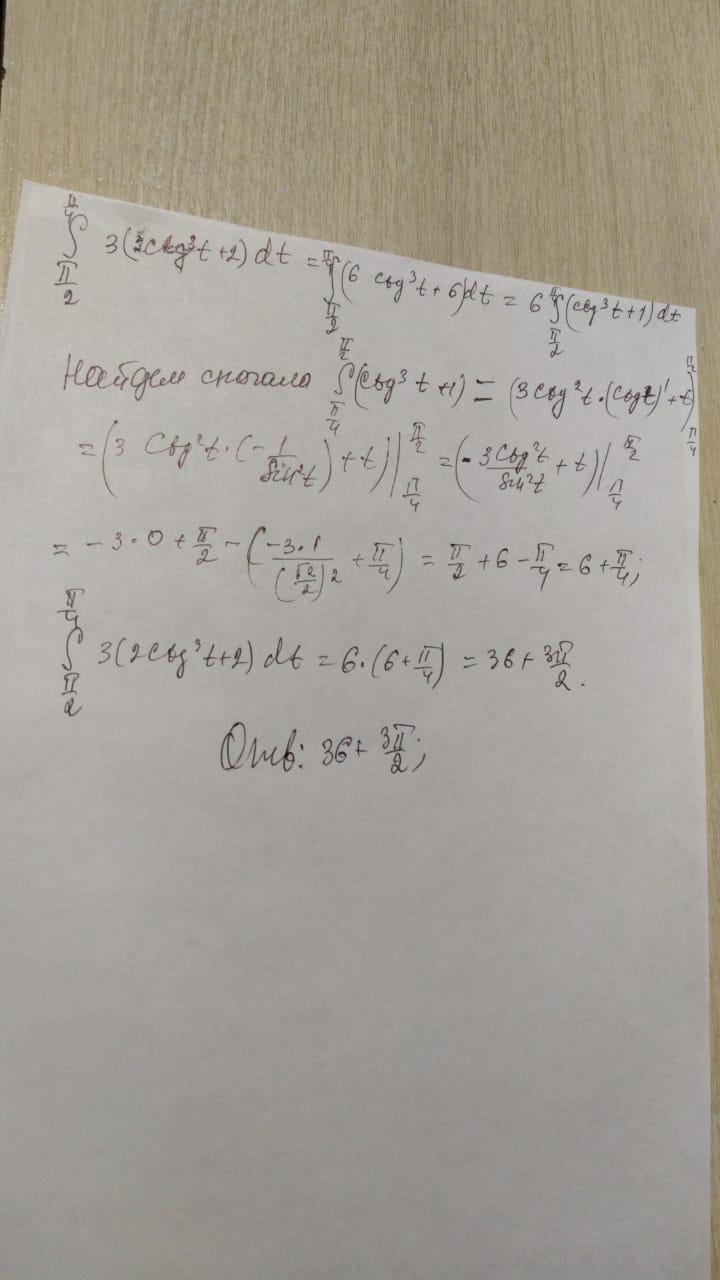 ∫_{π/2}^{π/4} 3(2ctg³t+2) dt = ∫_{π/2}^{π/4} (6 ctg³t + 6)dt = 6 ∫_{π/2}^{π/4} (ctg³t+1) dt
Найдем сначала ∫_{π/4}^{π/2} (ctg³t+1) = (3 ctg²t·(ctgt)' + t)|_{π/4}^{π/2}
= (3 ctg²t·(-1/sin²t) + t)|_{π/4}^{π/2} = (-3ctg²t/sin²t + t)|_{π/4}^{π/2}
= -3·0 + π/2 - (-3·1/(√2/2)² + π/4) = π/2 + 6 - π/4 = 6 + π/4;
∫_{π/2}^{π/4} 3(2ctg³t+2) dt = 6·(6+π/4) = 36 + 3π/2.
Отв: 36 + 3π/2;